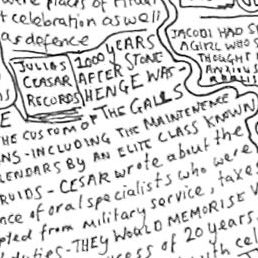 were places of
t celebration as well
as defence
JULIUS
CEASAR
RECORDS
1000 YEARS
AFTER STONE
HENGE WAS-
JACOBI HAD S
A GIRL WHO S
THOUGHT
ANXIOUS
E
THE CUSTOM OF THE GALLS
NS-INCLUDING THE MAINTENENCE
LENDARS BY AN ELITE CLASS KNOWN
RUIDS - CESAR wrote about the
nce of oral specialists who were
pted from military service, taxes
duties - THEY WOULD MEMORISE V
cess of 20 years.